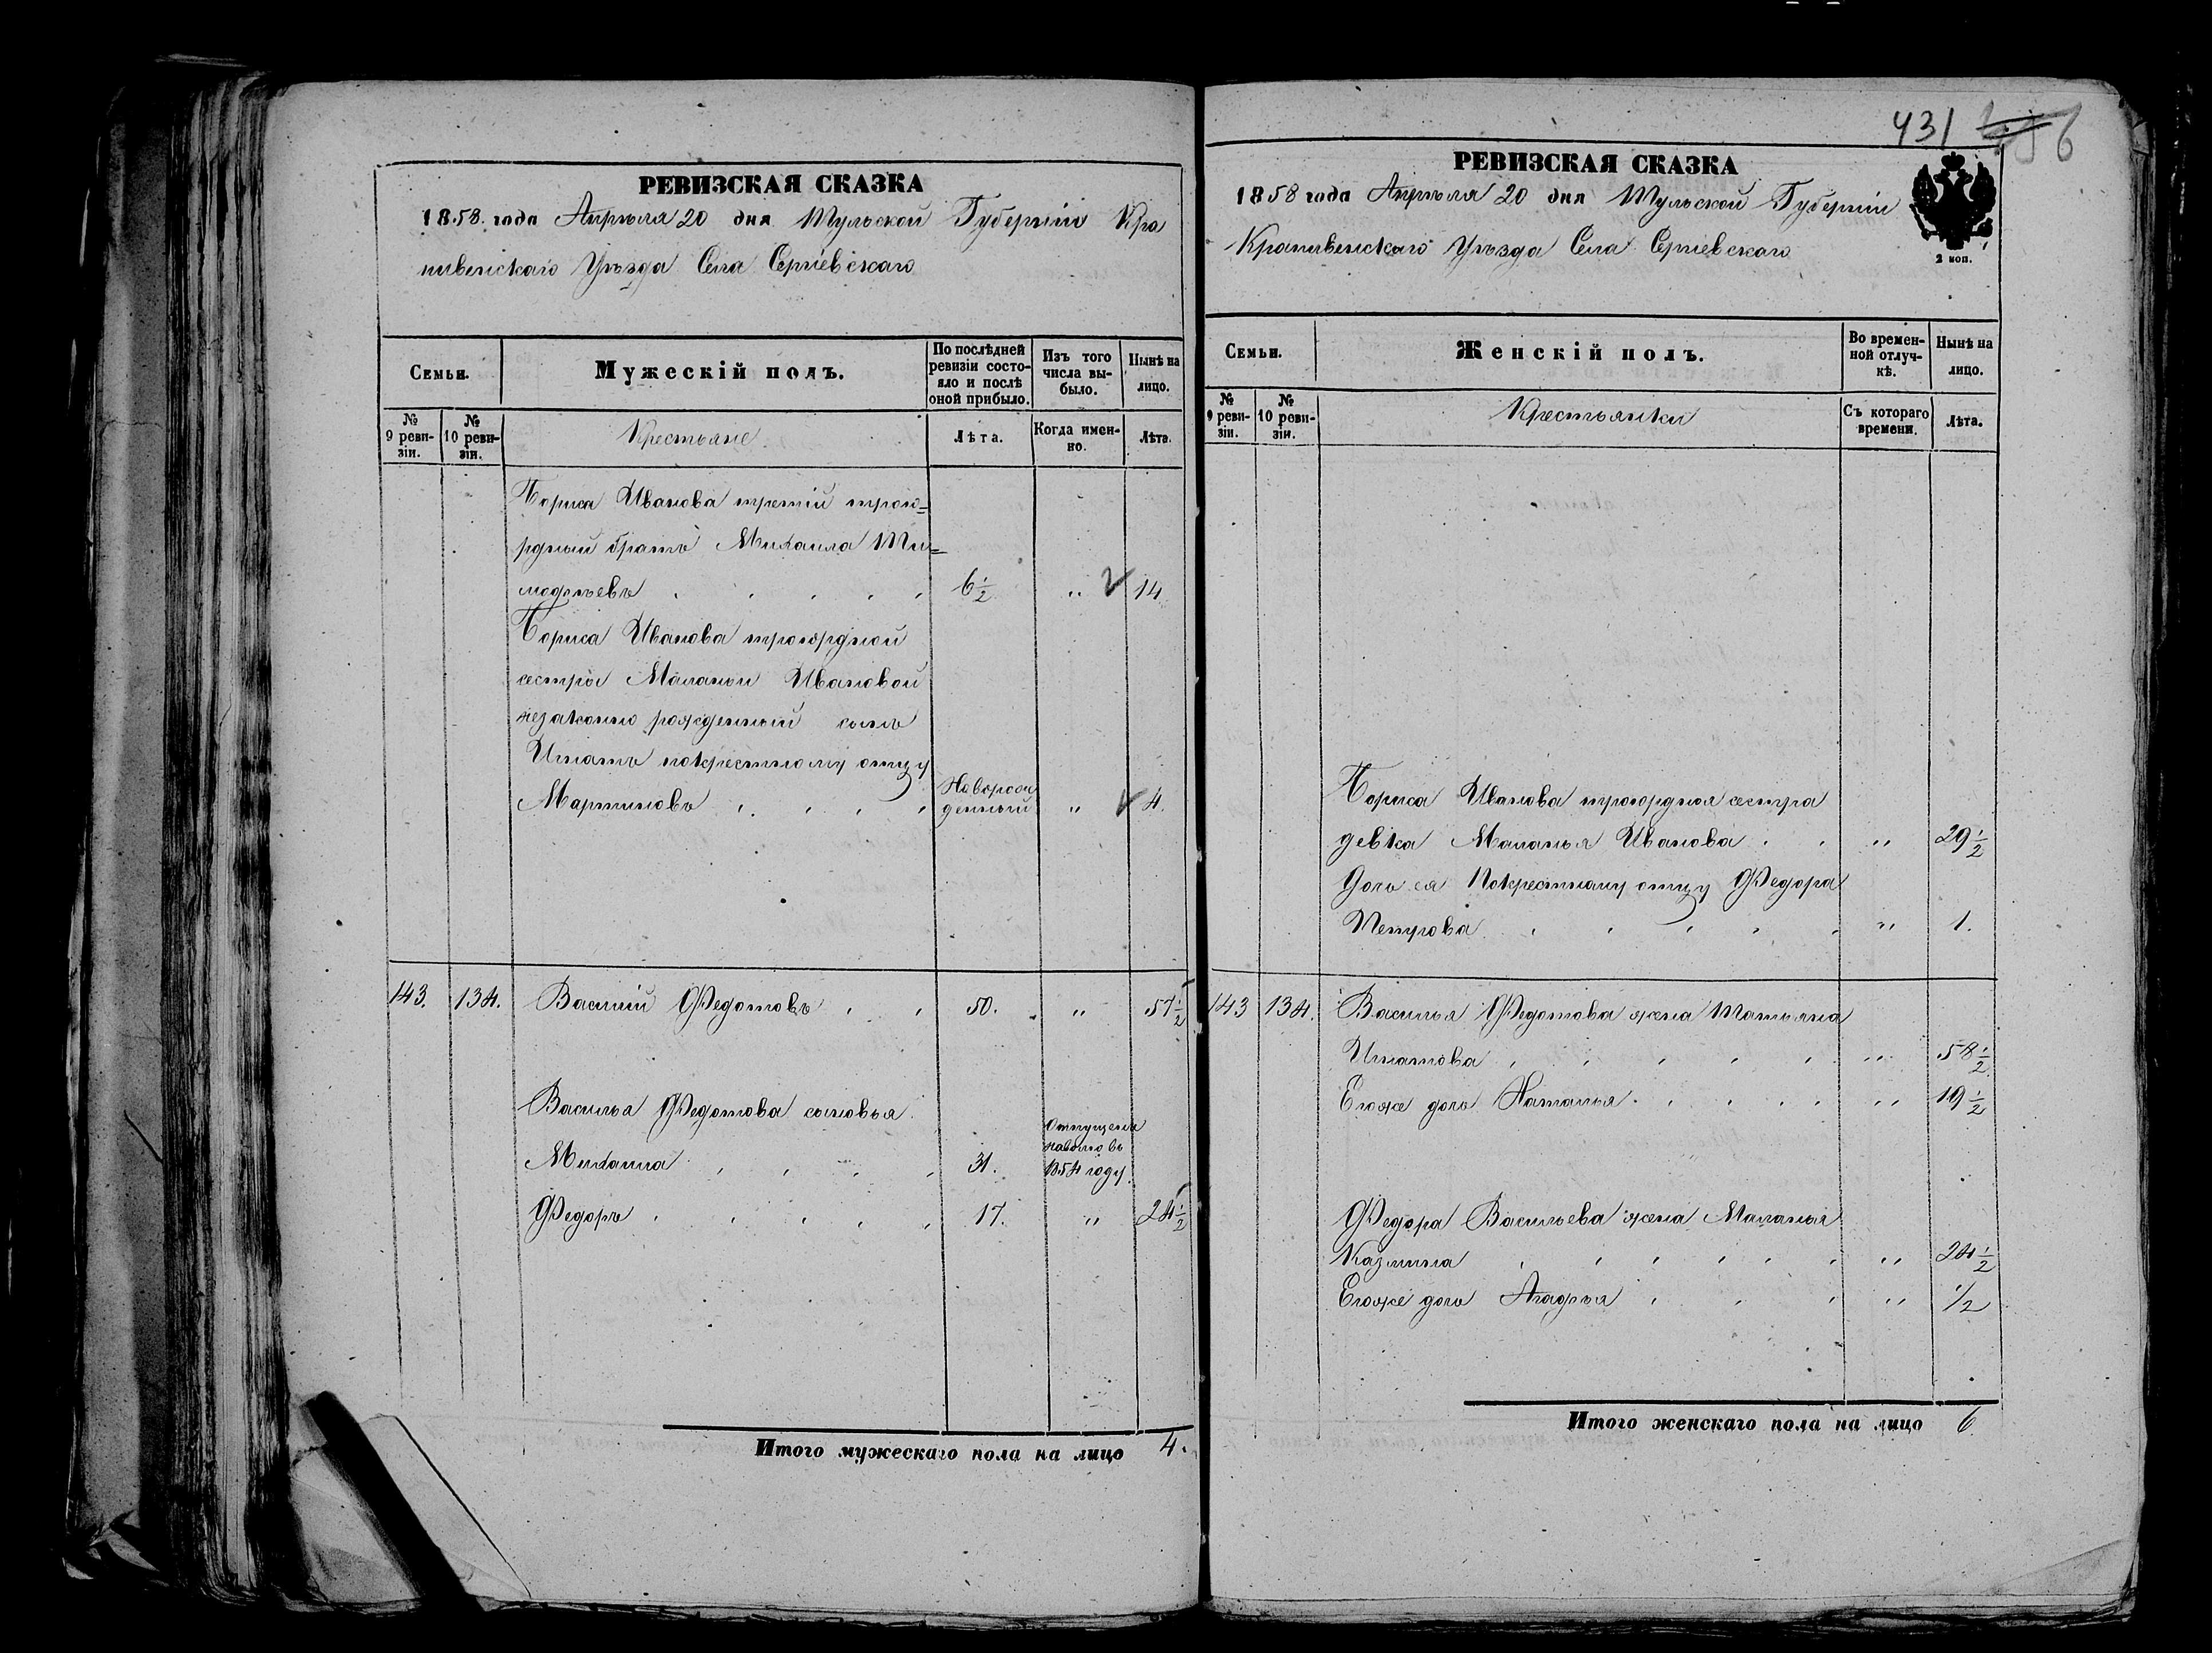 РЕВИЗСКАЯ СКАЗКА
1858. года Апрѣля 20 дня Тульской Губерніи Кра
пивенскаго Уѣзда Села Сергіевскаго
Семьи.
Мужескій полъ.
По послѣдней
ревизіи состо-
яло и послѣ
оной прибыло.
Изъ того
числа вы-
было.
Нынѣ на
лицо.
№
9 реви-
зіи.
№
10 реви-
зіи.
Крестьяне
Лѣта.
Когда имен-
но.
Лѣта.
Бориса Иванова третій трою=
рдный братъ Михаила Ти=
мофѣевъ 6½ " 14
Бориса Иванова троюрдной
сестры Маланьи Ивановой
незаконно рожденный сынъ
Игнатъ покрестному отцу
Мартиновъ Новорож
денный " 4.
143. 134. Василій Федотовъ 50. " 57½
Василья Федотова сыновья
Михаила 31. Отпущенъ
наволю въ
1854 году.
Федоръ 17. " 24½
Итого мужескаго пола на лицо 4.
431
РЕВИЗСКАЯ СКАЗКА
1858 года Апрѣля 20 дня Тульской Губерніи
Крапивенскаго Уѣзда Села Сергіевскаго
2 коп.
Семьи.
Женскій полъ.
Во времен-
ной отлуч-
кѣ.
Нынѣ на
лицо.
№
9 реви-
зіи.
№
10 реви-
зіи.
Крестьянки
Съ котораго
времени.
Лѣта.
Бориса Иванова троюрдная сестра
девка Маланья Иванова " 29½
Дочь ея Покрестному отцу Федора
Петрова " 1.
143 134. Василья Федотова жена Татьяна
Игнатова " 58½
Егоже дочь Наталья " 19½
Федора Васильева жена Маланья
Казмина " 24½
Егоже дочь Агафья " 1/2
Итого женскаго пола на лицо 6